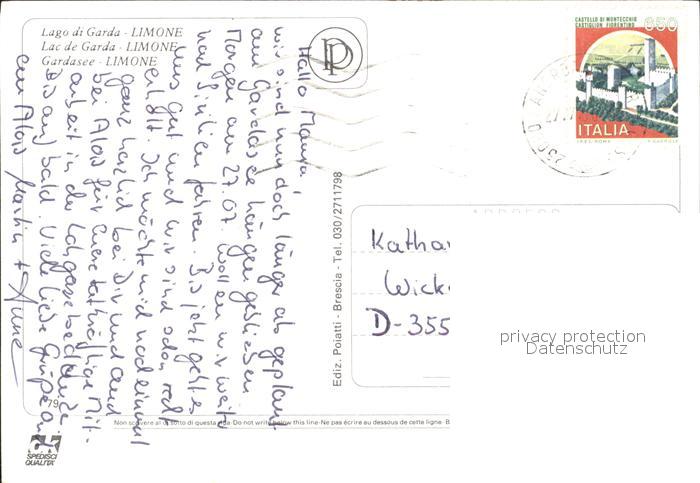 Lago di Garda - LIMONE
Lac de Garda - LIMONE
Gardasee - LIMONE
Hallo Mama!
wir sind nun doch länger als geplant
am Gardasee hängen geblieben
Morgen am 27.07. wollen wir weiter
nach Sizilien fahren. Bis jetzt geht es
uns gut und wir sind schon recht
erholt. Ich möchte mich noch einmal
ganz herzlich bei Dir und auch
bei Alois für Eure tatkräftige Mit-
arbeit in der bedanken.
Bis auf bald. Viele liebe Grüße auch
an Alois Martin + Anne
P
79
SPEDISCI
QUALITÀ
Ediz. Poiatti - Brescia - Tel. 030/2711798
Non scrivere al di sotto di questa riga - Do not write below this line - Ne pas écrire au dessous de cette ligne - B
CASTELLO DI MONTECCHIO
CASTIGLION FIORENTINO
650
ITALIA
I.P.Z.S. ROMA
ADDRESS
Katha
Wick
D-355
privacy protection
Datenschutz